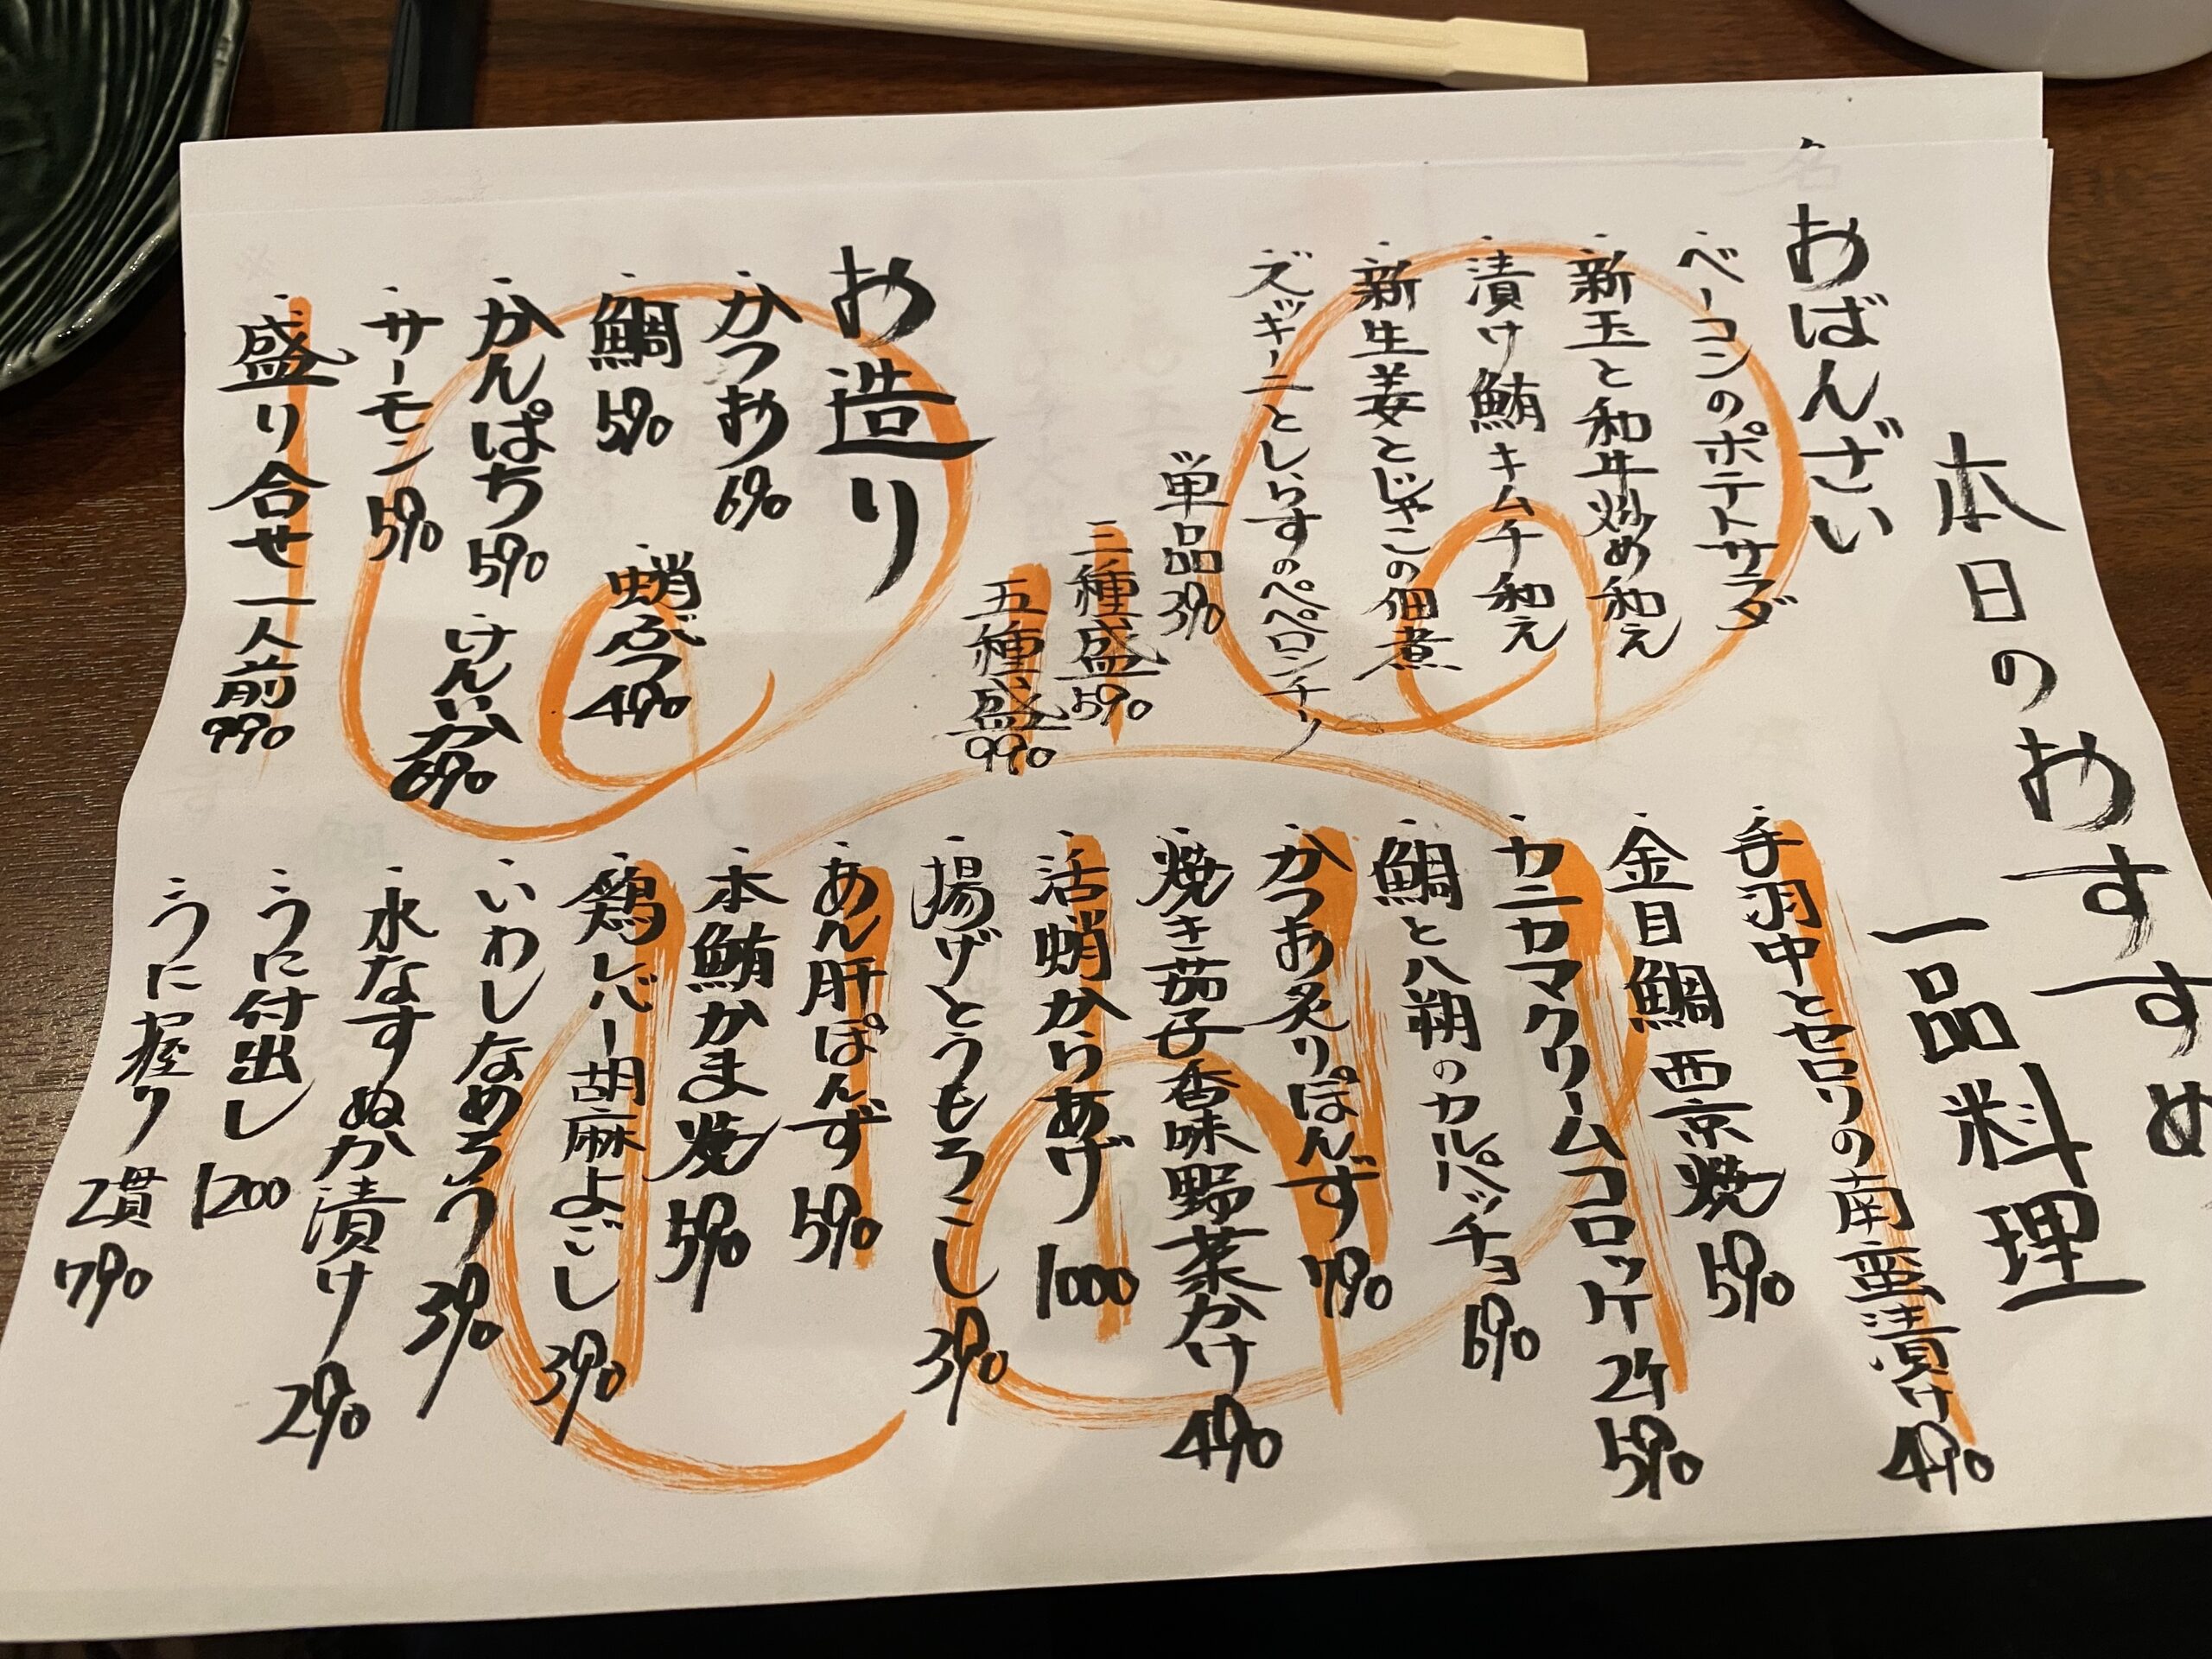 本日のおすすめ
おばんざい
・ベーコンのポテトサラダ
・新玉と和牛炒め和え
・漬け鮪キムチ和え
・新生姜とじゃこの佃煮
・ズッキーニとしらすのペペロンチーノ
単品390
三種盛590
五種盛990
お造り
・かつお690
・鯛590
・蛸ぶつ490
・かんぱち590
・けんいか690
・サーモン590
・盛り合せ一人前990
一品料理
・手羽中とセロリの南蛮漬け490
・金目鯛西京焼590
・カニカマクリームコロッケ2ヶ590
・鯛と八朔のカルパッチョ690
・かつお炙りぽんず790
・焼き茄子香味野菜かけ490
・活蛸からあげ1000
・揚げとうもろこし390
・あん肝ぽんず590
・本鮪かま焼590
・鶏レバー胡麻よごし390
・いわしなめろう390
・水なすぬか漬け290
・うに付出し1200
・うに握り2貫790